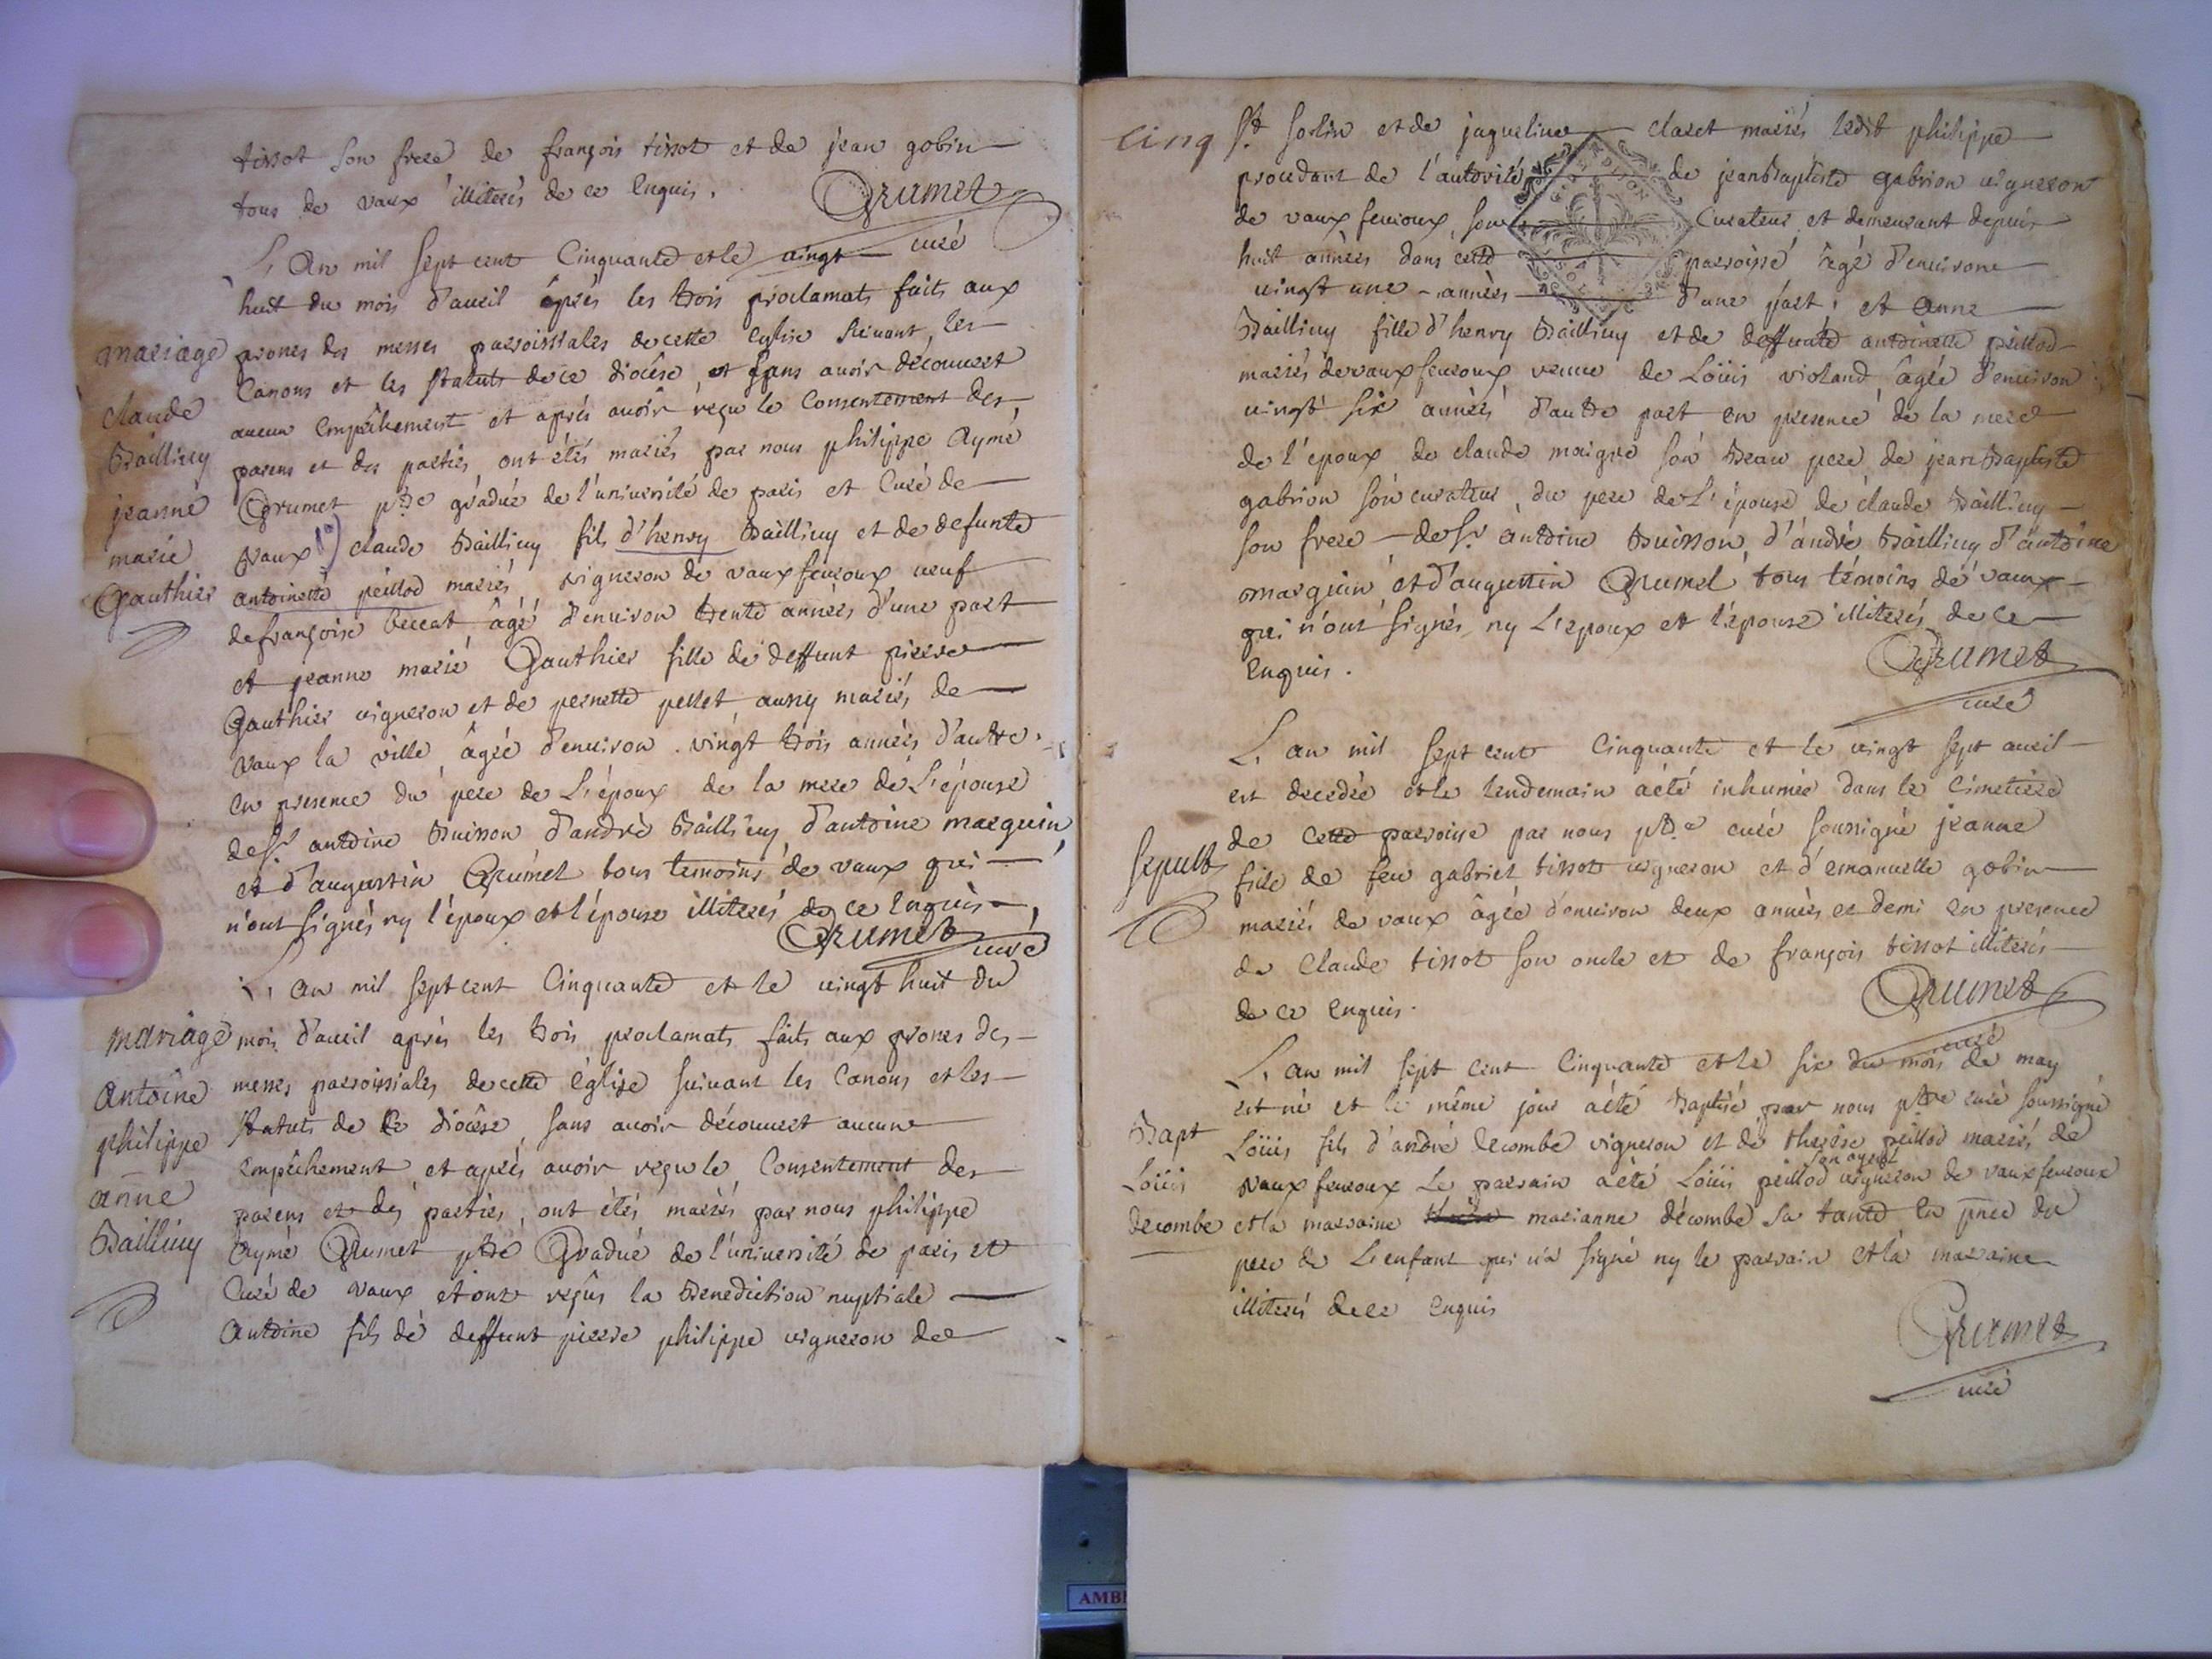 tissot son frere de françois tissot et de jean gobin
tous de vaux illiterés de ce Enquis.
Grumet
curé
L'An mil sept cent Cinquante et le vingt
huit du mois d'avril après les trois proclamats faits aux
mariage
prones des messes parroissiales de cette Eglise suivant les
Canons et les statuts de ce diocêse, et sans avoir découvert
claude
aucun Empêchement et après avoir reçu le Consentement des
Baillivy
parens et des parties, ont étés mariés par nous philippe Aymé
jeanne
Grumet ptre gradué de l'université de paris et Curé de
marie
vaux claude Baillivy fils d'henry Baillivy et de defunte
Gauthier
antoinette peillod mariés vigneron de vaux fevroux veuf
de françoise beccat âgé d'environ trente années d'une part
et jeanne marie Gauthier fille de deffunt pierre
Gauthier vigneron et de pernette pellet aussy mariés de
vaux la ville âgée d'environ vingt trois années d'autre
en presence du pere de L'époux de la mere de L'épouse
de Sr antoine Buisson d'andré Baillivy d'antoine marguin
et d'augustin Grumet tous temoins de vaux qui
n'ont signés ny l'époux et l'épouse illiterés de ce Enquis
Grumet
curé
L'an mil sept cent Cinquante et le vingt huit du
mariage
mois d'avril après les trois proclamats faits aux prones des
Antoine
messes parroissiales de cette Eglise suivant les Canons et les
philippe
statuts de ce diocêse, sans avoir découvert aucun
anne
empêchement et après avoir reçu le Consentement des
Baillivy
parens et des parties, ont étés mariés par nous philippe
Aymé Grumet ptre Gradué de l'université de paris et
Curé de vaux et ont reçus la Benediction nuptiale
Antoine fils de deffunt pierre philippe vigneron de
cinq
St sorlin et de jaqueline claret mariés ledit philippe
procedant de l'autorité de jean Baptiste gabrion vigneron
de vaux fevroux, son Curateur et demeurant depuis
huit années dans cette parroisse âgé d'environ
vingt une années d'une part, et Anne
Baillivy fille d'henry Baillivy et de deffunte antoinette peillod
mariés de vaux fevroux veuve de Loüis violand âgée d'environ
vingt six années d'autre part en presence de la mere
de l'époux de claude maigre son Beau pere de jean Baptiste
gabrion son curateur, du pere de L'épouse de claude Baillivy
son frere de Sr antoine Buisson, d'andré Baillivy d'antoine
marguin et d'augustin Grumet tous témoins de vaux
qui n'ont signés, ny L'epoux et l'épouse illiterés de ce
Enquis.
Grumet
curé
L'an mil sept cent Cinquante et le vingt sept avril
est decedée et le lendemain a été inhumée dans le Cimetiere
de cette parroisse par nous ptre curé soussigné jeanne
Sepult
fille de feu gabriel tissot vigneron et d'emanuelle gobin
mariés de vaux âgée d'environ deux années et demi en presence
de Claude tissot son oncle et de françois tissot illiterés
de ce Enquis.
Grumet
curé
L'an mil sept cent Cinquante et le six du mois de may
est né et le même jour a été Baptisé par nous ptre curé soussigné
Bapt
Loüis fils d'andré decombe vigneron et de therèse peillod mariés de
son ayeul
Loüis
vaux fevroux Le parrain a été Loüis peillod vigneron de vaux fevroux
decombe
et la marraine marianne décombe sa tante en pnce du
pere de L'enfant qui n'a signé ny le parrain et la marraine
illiterés de ce Enquis
Grumet
curé
AMB